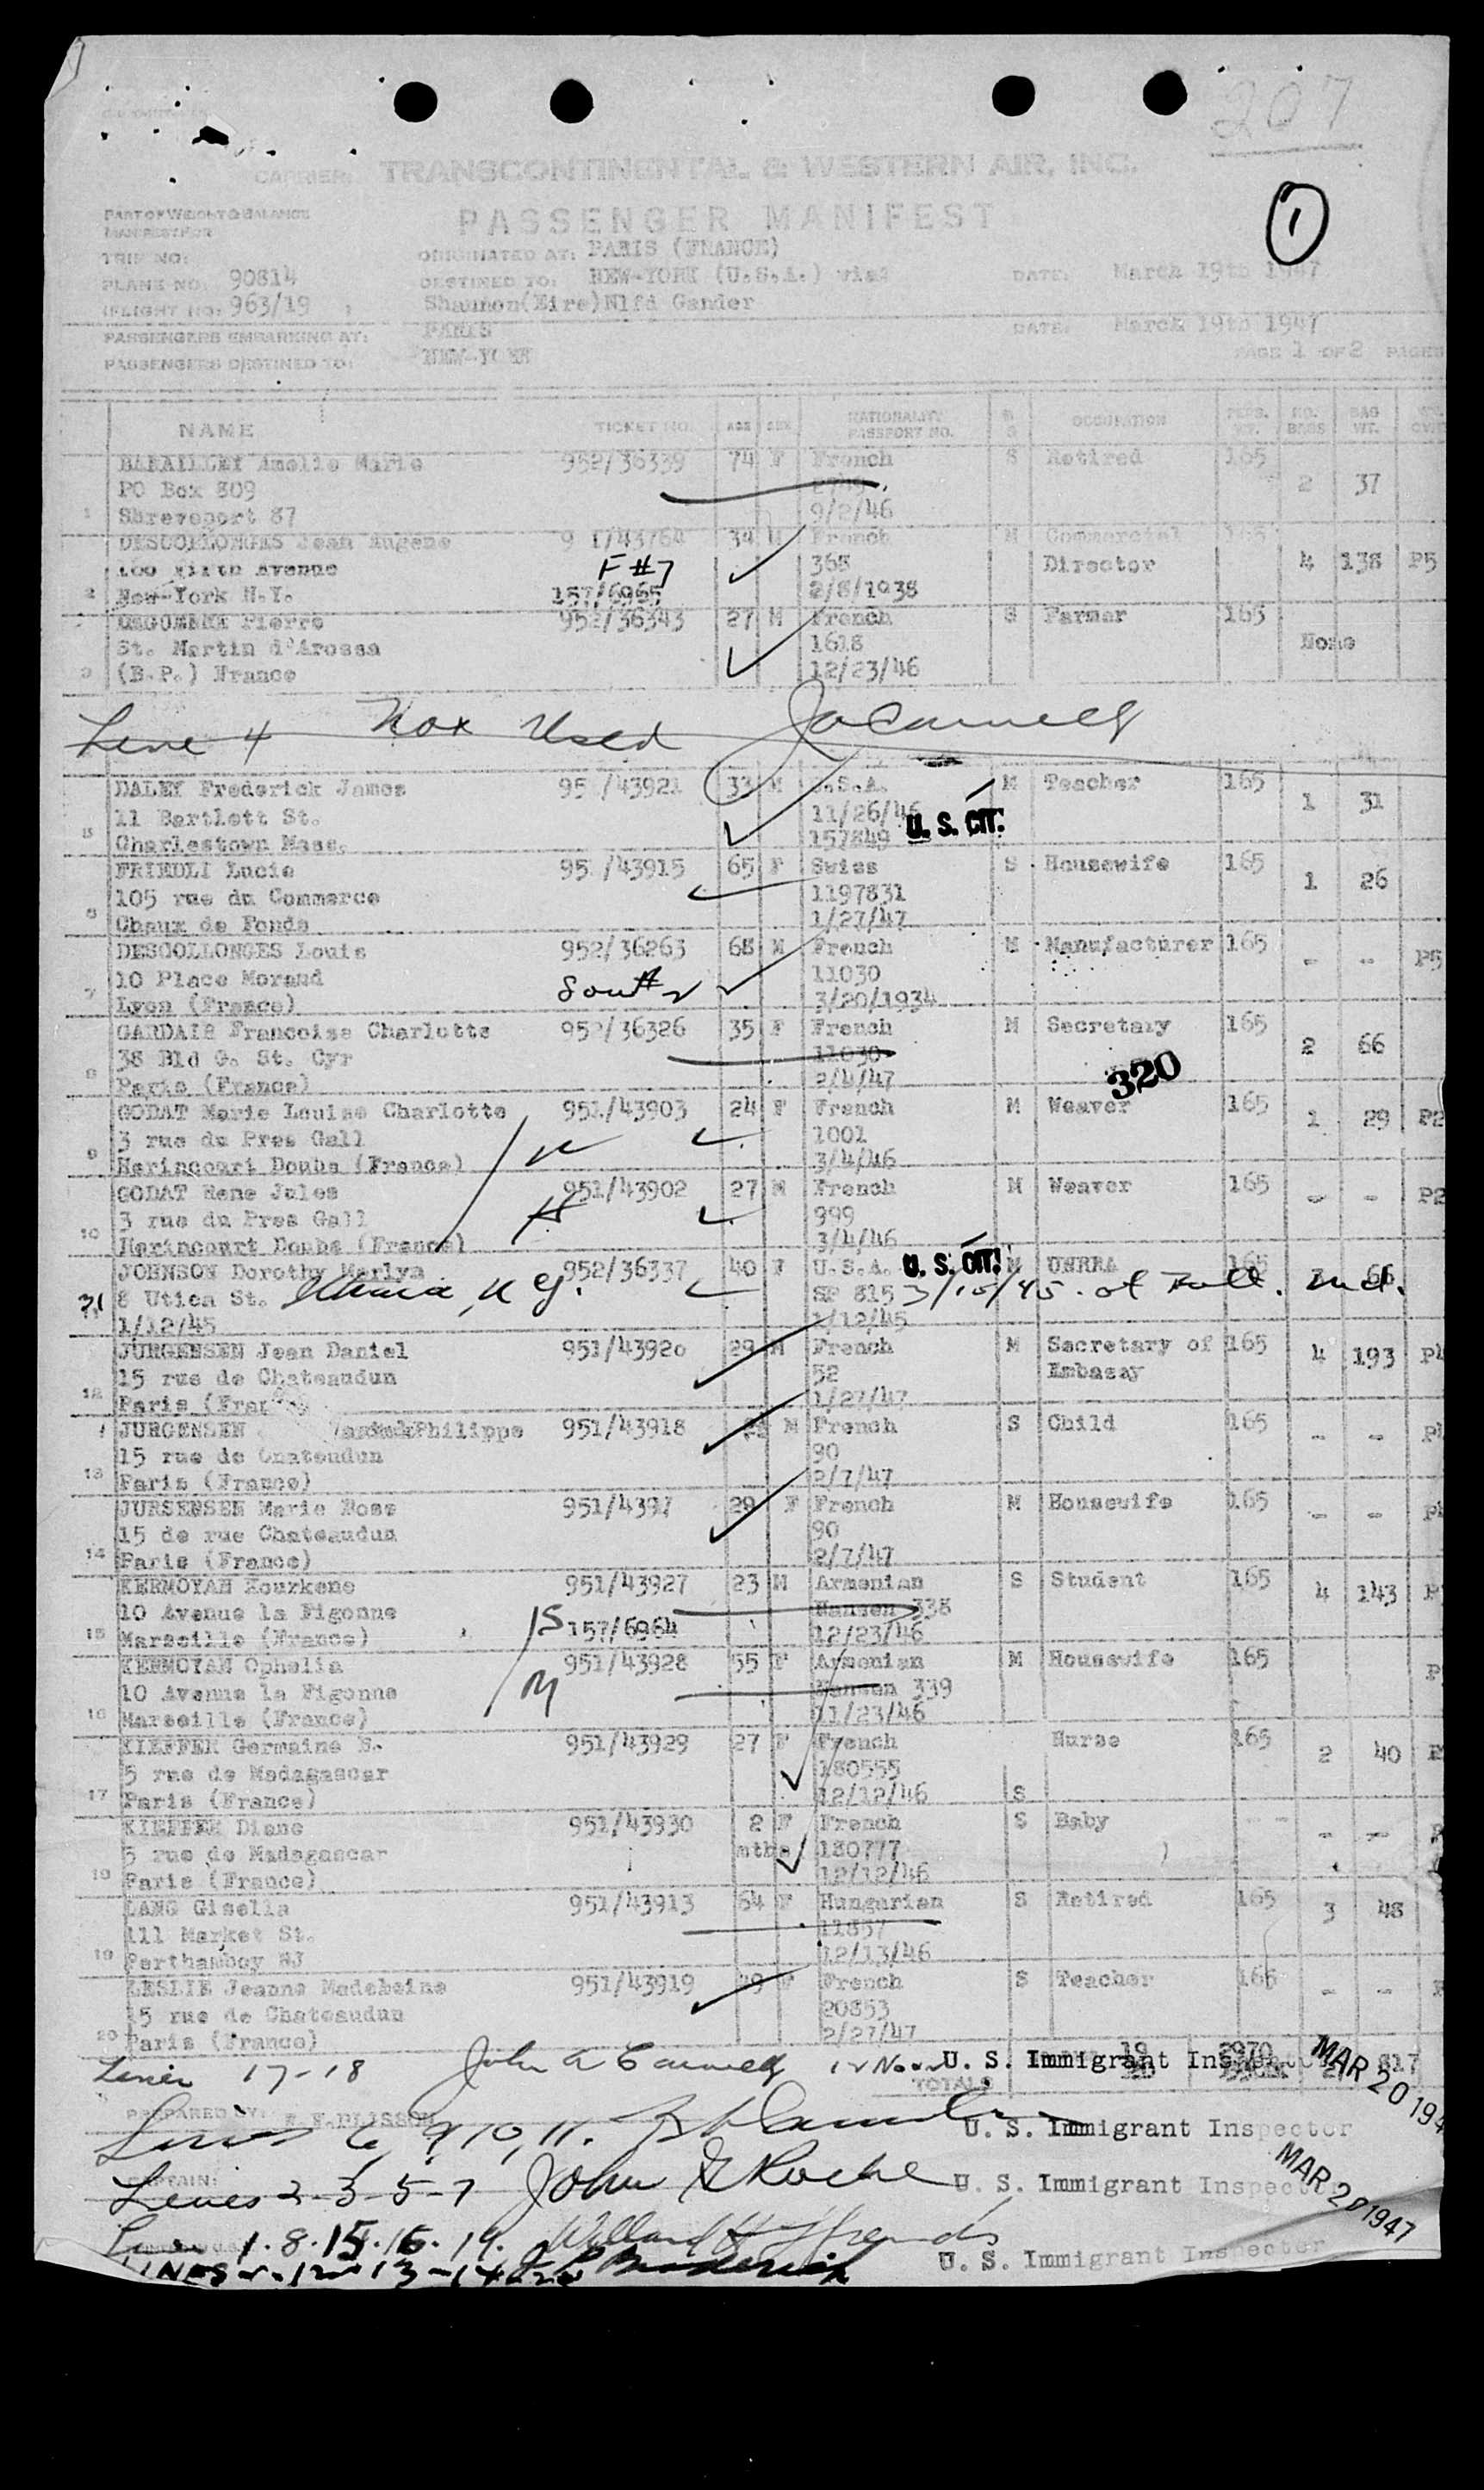 207
CARRIER: TRANSCONTINENTAL & WESTERN AIR, INC.
1
PART OF WEIGHT & BALANCE
MANIFEST FOR
PASSENGER MANIFEST
TRIP NO:
ORIGINATED AT: PARIS (FRANCE)
PLANE NO: 90814
DESTINED TO: NEW-YORK (U.S.A.) via:
DATE: March 19th 1947
FLIGHT NO: 963/19
Shannon(Eire)Nlfd Gander
PASSENGERS EMBARKING AT: PARIS
DATE: March 19th 1947
PASSENGERS DESTINED TO: NEW-YORK
PAGE 1 OF 2 PAGES
NAME TICKET NO. AGE SEX NATIONALITY PASSPORT NO. M S OCCUPATION PERS. WT. NO. BAGS BAG WT.
Amelie Marie 952/36339 74 F French S Retired 165
PO Box 809 2 37
1 Shreveport 87 9/2/46
DESCOLLONGES Jean Eugene 34 M French M Commercial 165
Avenue F#7 368 Director 4 138 P5
2 New-York N.Y. 157/6965 2/8/1938
Pierre 952/36343 27 M French S Farmer 165
St. Martin d'Arossa 1618 None
3 (B.P.) France 12/23/46
Line 4 Not Used
DALEY Frederick James 95 /43921 33 M U.S.A. M Teacher 165
11 Bartlett St. 11/26/46 U. S. CIT. 1 31
5 Charlestown Mass. 157849
FRIEDLI Lucie 95 /43915 65 F Swiss S Housewife 165
105 rue du Commerce 1197831 1 26
6 Chaux de Fonds 1/27/47
DESCOLLONGES Louis 952/36263 68 M French M Manufacturer 165
10 Place Morand 11030 - - P5
7 Lyon (France) 3/20/1934
GARDAIS Francoise Charlotte 952/36326 35 F French M Secretary 165
38 Bld G. St. Cyr 11030 2 66
8 Paris (France) 2/4/47 320
GODAT Marie Louise Charlotte 951/43903 24 F French M Weaver 165
3 rue du Pres Gall 1001 1 29 P2
9 Herincourt Doubs (France) 3/4/46
GODAT Rene Jules 951/43902 27 M French M Weaver 165
3 rue du Pres Gall 999 - - P2
10 Herincourt Doubs (France) 3/4/46
JOHNSON Dorothy Marlya 952/36337 40 F U.S.A. U. S. CIT. M UNRRA 165
8 Utica St. SP 815 3/15/45 at 66
1/12/45 1/12/45
JURGENSEN Jean Daniel 951/43920 29 M French M Secretary of 165
15 rue de Chateaudun 52 Embassy 4 193
12 Paris (France) 1/27/47
JURGENSEN Philippe 951/43918 M French S Child 165
15 rue de Chateudun 90 - -
13 Paris (France) 2/7/47
JURSENSEN Marie Rose 951/4397 29 F French M Housewife 165
15 de rue Chateaudun 90 - -
14 Paris (France) 2/7/47
KERMOYAN Kouzkene 951/43927 23 M Armenian S Student 165
10 Avenue la Figonne Nansen 338 4 143 P
15 Marseille (France) 157/6964 12/23/46
KERMOYAN Ophelia 951/43928 55 F Armenian M Housewife 165
10 Avenue la Figonne Nansen 339 P
16 Marseille (France) 11/23/46
KIEFFER Germaine 951/43929 27 F French Nurse 165
5 rue de Madagascar 180555 2 40 P
17 Paris (France) 12/12/46 S
KIEFFER Diane 951/43930 2 F French S Baby
5 rue de Madagascar mths 180777 - -
18 Paris (France) 12/12/46
LANG Gisella 951/43913 64 F Hungarian S Retired 165
111 Market St. 11857 3 48
19 Perthamboy NJ 12/13/46
LESLIE Jeanne Madeheine 951/43919 F French S Teacher 165
15 rue de Chateaudun 20853 - -
20 Paris (France) 2/27/47
Lines 17-18 U. S. Immigrant Inspector 817
MAR 20 194
TOTALS
PREPARED BY:
Lines 6, 9, 10, 11. U. S. Immigrant Inspector
CAPTAIN:
Lines 2-3-5-7 John G Roche U. S. Immigrant Inspector
MAR 20 1947
1.8.15.16.19. U. S. Immigrant Inspector
LINES 12 13-14